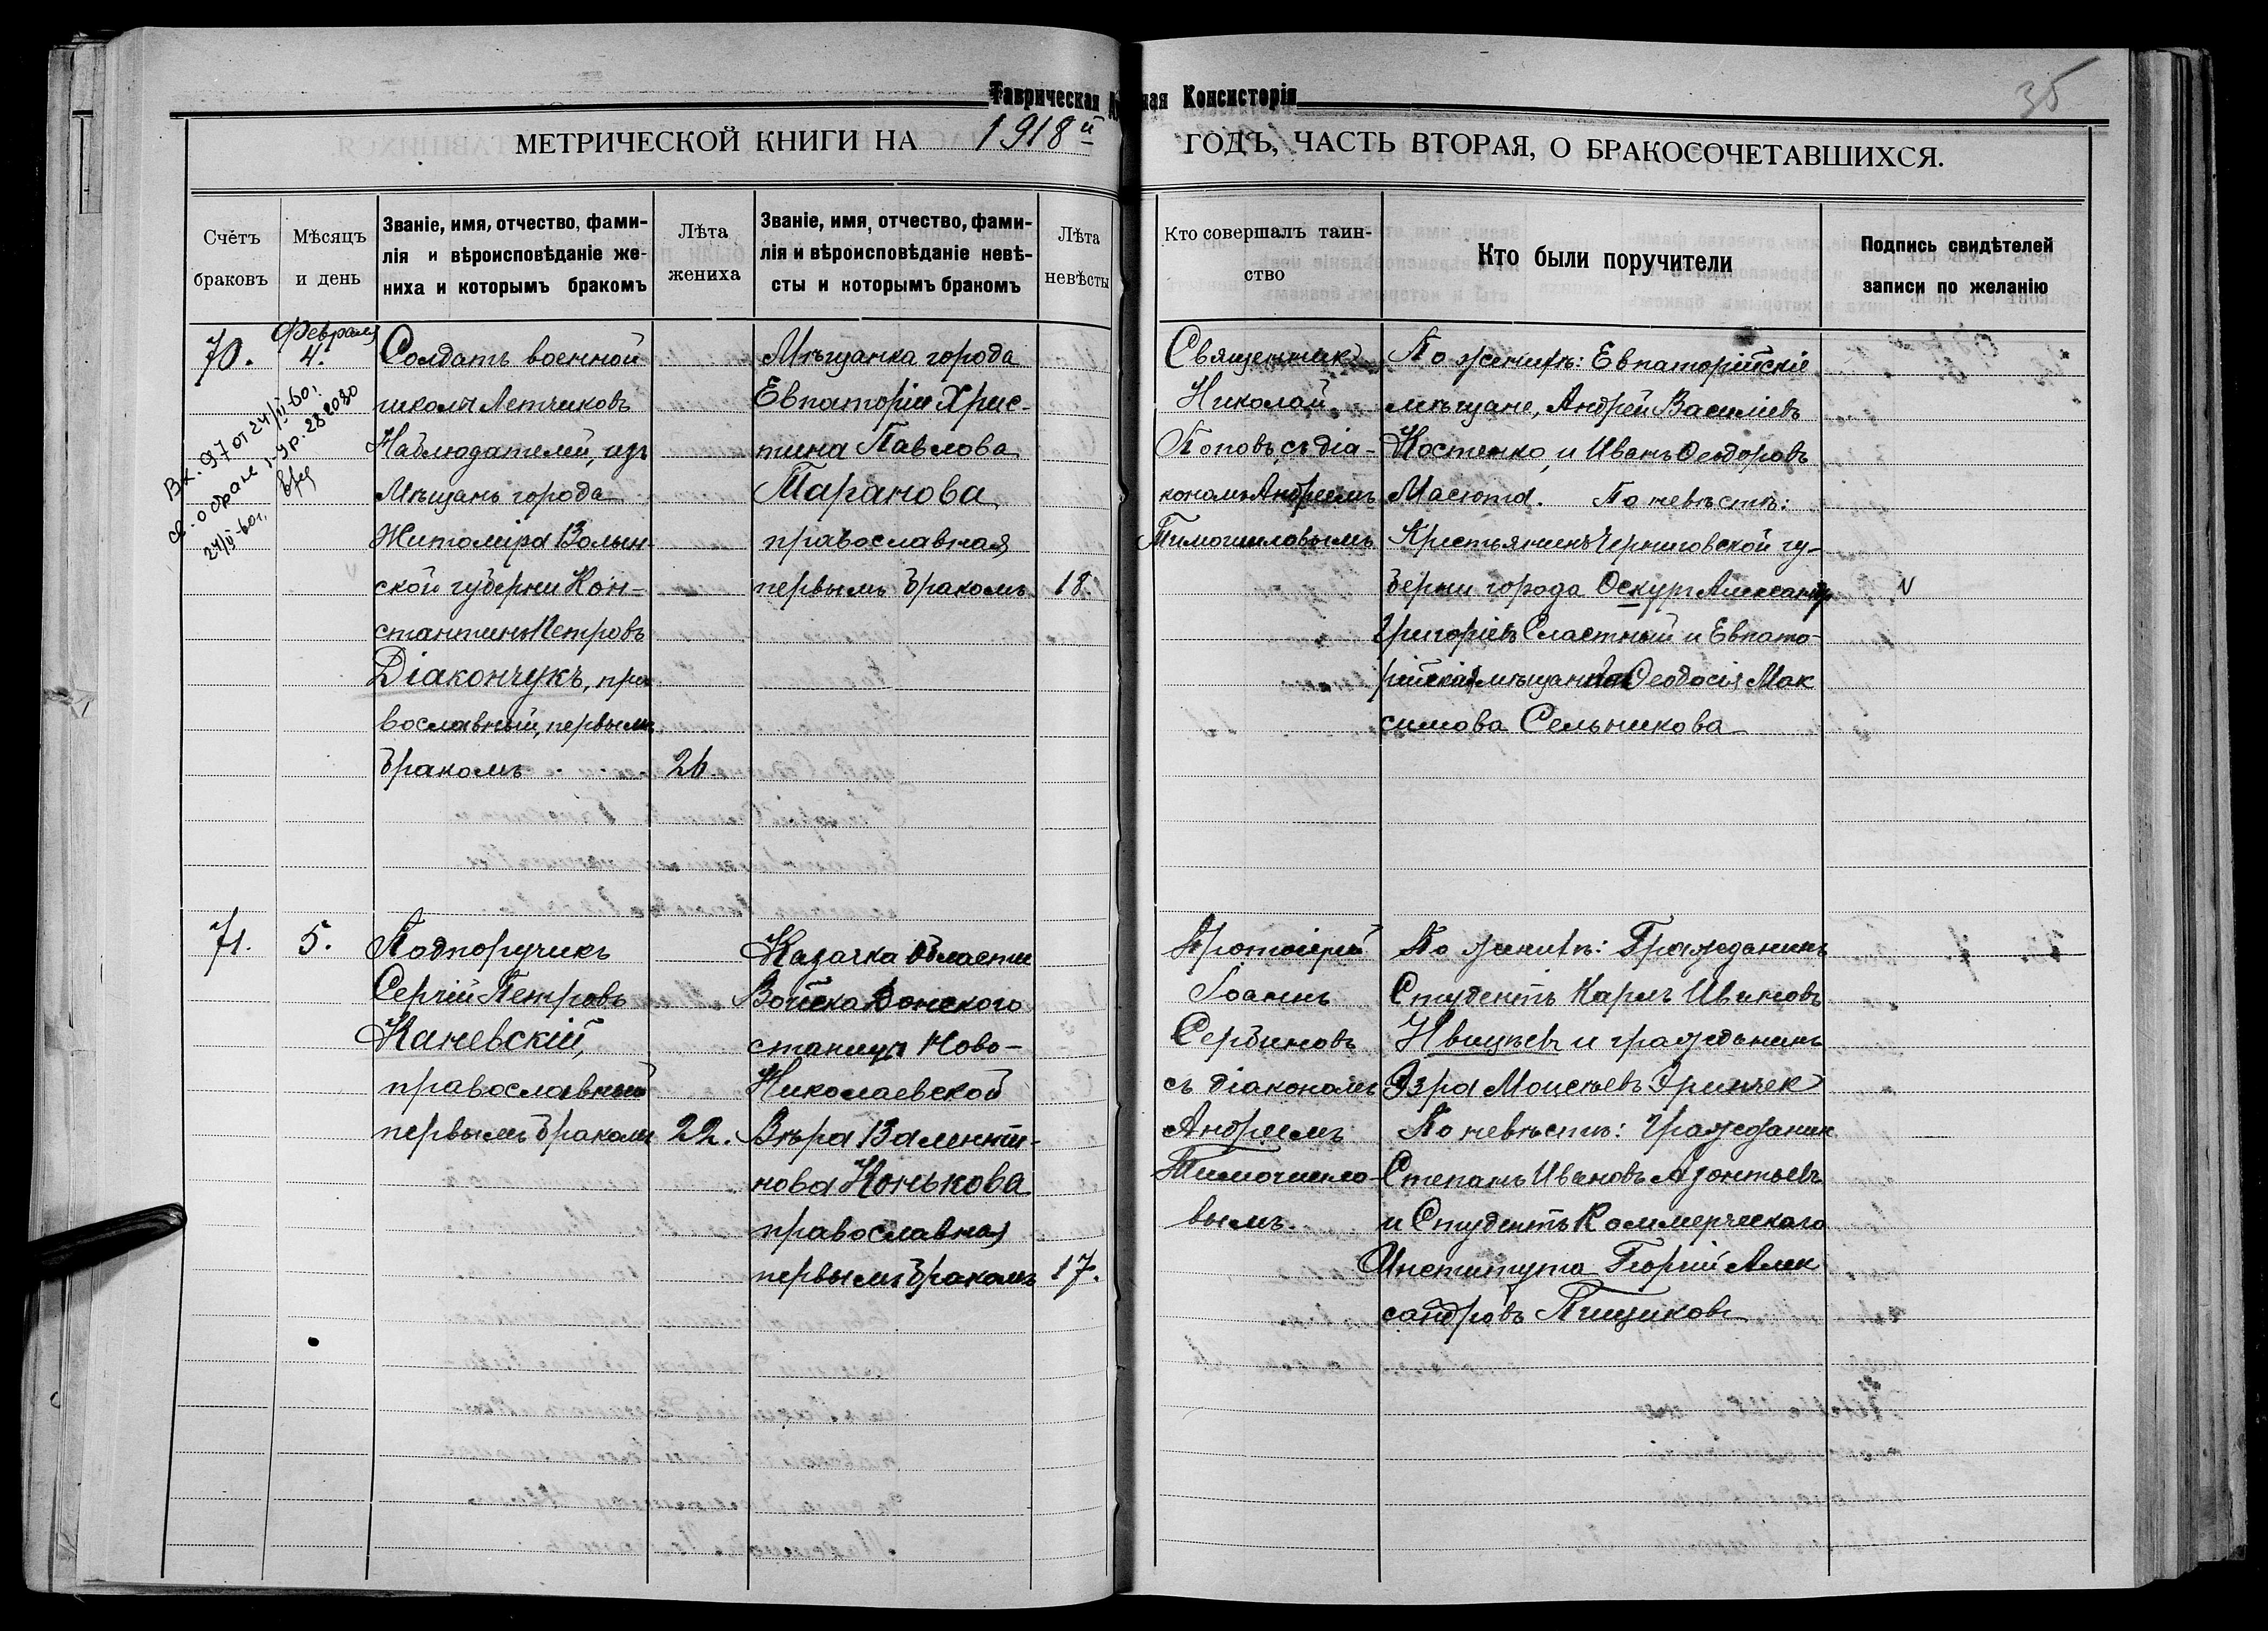 Таврическая
ная Консисторія
35
МЕТРИЧЕСКОЙ КНИГИ НА 1918й
ГОДЪ, ЧАСТЬ ВТОРАЯ, О БРАКОСОЧЕТАВШИХСЯ.
Счётъ
браковъ
Мѣсяцъ
и день
Званіе, имя, отчество, фами-
лія и вѣроисповѣданіе же-
ниха и которымъ бракомъ
Лѣта
жениха
Званіе, имя, отчество, фами-
лія и вѣроисповѣданіе невѣ-
сты и которымъ бракомъ
Лѣта
невѣсты
Кто совершалъ таин-
ство
Кто были поручители
Подпись свидѣтелей
записи по желанію
70.
Февраля
4.
Вх. 97 от 24/II-60г.
св. о браке I-УР. 282080
24/II-60г.
Солдатъ военной
школы Летчиковъ
Наблюдателей, изъ
Мѣщанъ города
Житоміра Волын-
ской губерніи Кон-
стантинъ Петровъ
Діакончукъ, пра
вославный, первымъ
бракомъ
26.
Мѣщанка города
Евпаторіи Хрис-
тина Павлова
Таранова
православная
первымъ бракомъ
18.
Священникъ
Николай
Поповъ, съ діа-
кономъ Андреемъ
Тимошиловымъ
По женихѣ: Евпаторійскіе
мѣщане, Андрей Василіевъ
Костенко, и Иванъ Ѳеодоровъ
Масюта. По невѣстѣ:
Крестьянинъ Черниговской гу-
берніи города Оскурт Александр
Григоріевъ Сластный и Евпато-
рійская мѣщанка Ѳеодосія Мак
симова Сельникова
71.
5.
Подпоручикъ
Сергій Петровъ
Каневскій,
православный
первымъ бракомъ
22.
Казачка Области
Войска Донского
станицы Ново-
Николаевской
Вѣра Валенти-
нова Конькова
православная
первымъ бракомъ
17.
Протоіерей
Іоаннъ
Сербиновъ
съ діакономъ
Андреемъ
Тимошило-
вымъ.
По женихѣ: Гражданинъ
Студентъ Карлъ Ивановъ
и гражданинъ
Эзра Моисѣевъ
По невѣстѣ: Гражданинъ
Степанъ Ивановъ Азонтьевъ
и Студентъ Коммерческаго
Института Георгій Алек
сандровъ Пищиковъ